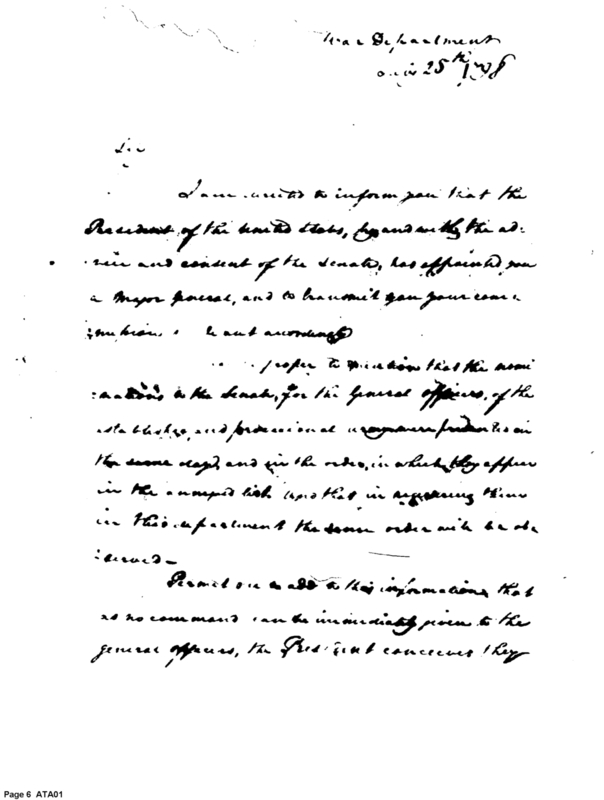 War Department
25th 1798
Sir
I am directed to inform you that the
President of the United States, by and with the ad-
vice and consent of the Senate, has appointed you
a Major General, and to transmit you your com-
mission accordingly
proper to mention that the nomi
nations to the Senate, for the General officers, of the
established, and provisional army were presented in
the same day, and in the order, in which they appear
in the annexed list and that in registering them
in this department the same order will be ob
served—
Permit me to add to this information, that
as no command can be immediately given to the
general officers, the President conceives they
Page 6 ATA01